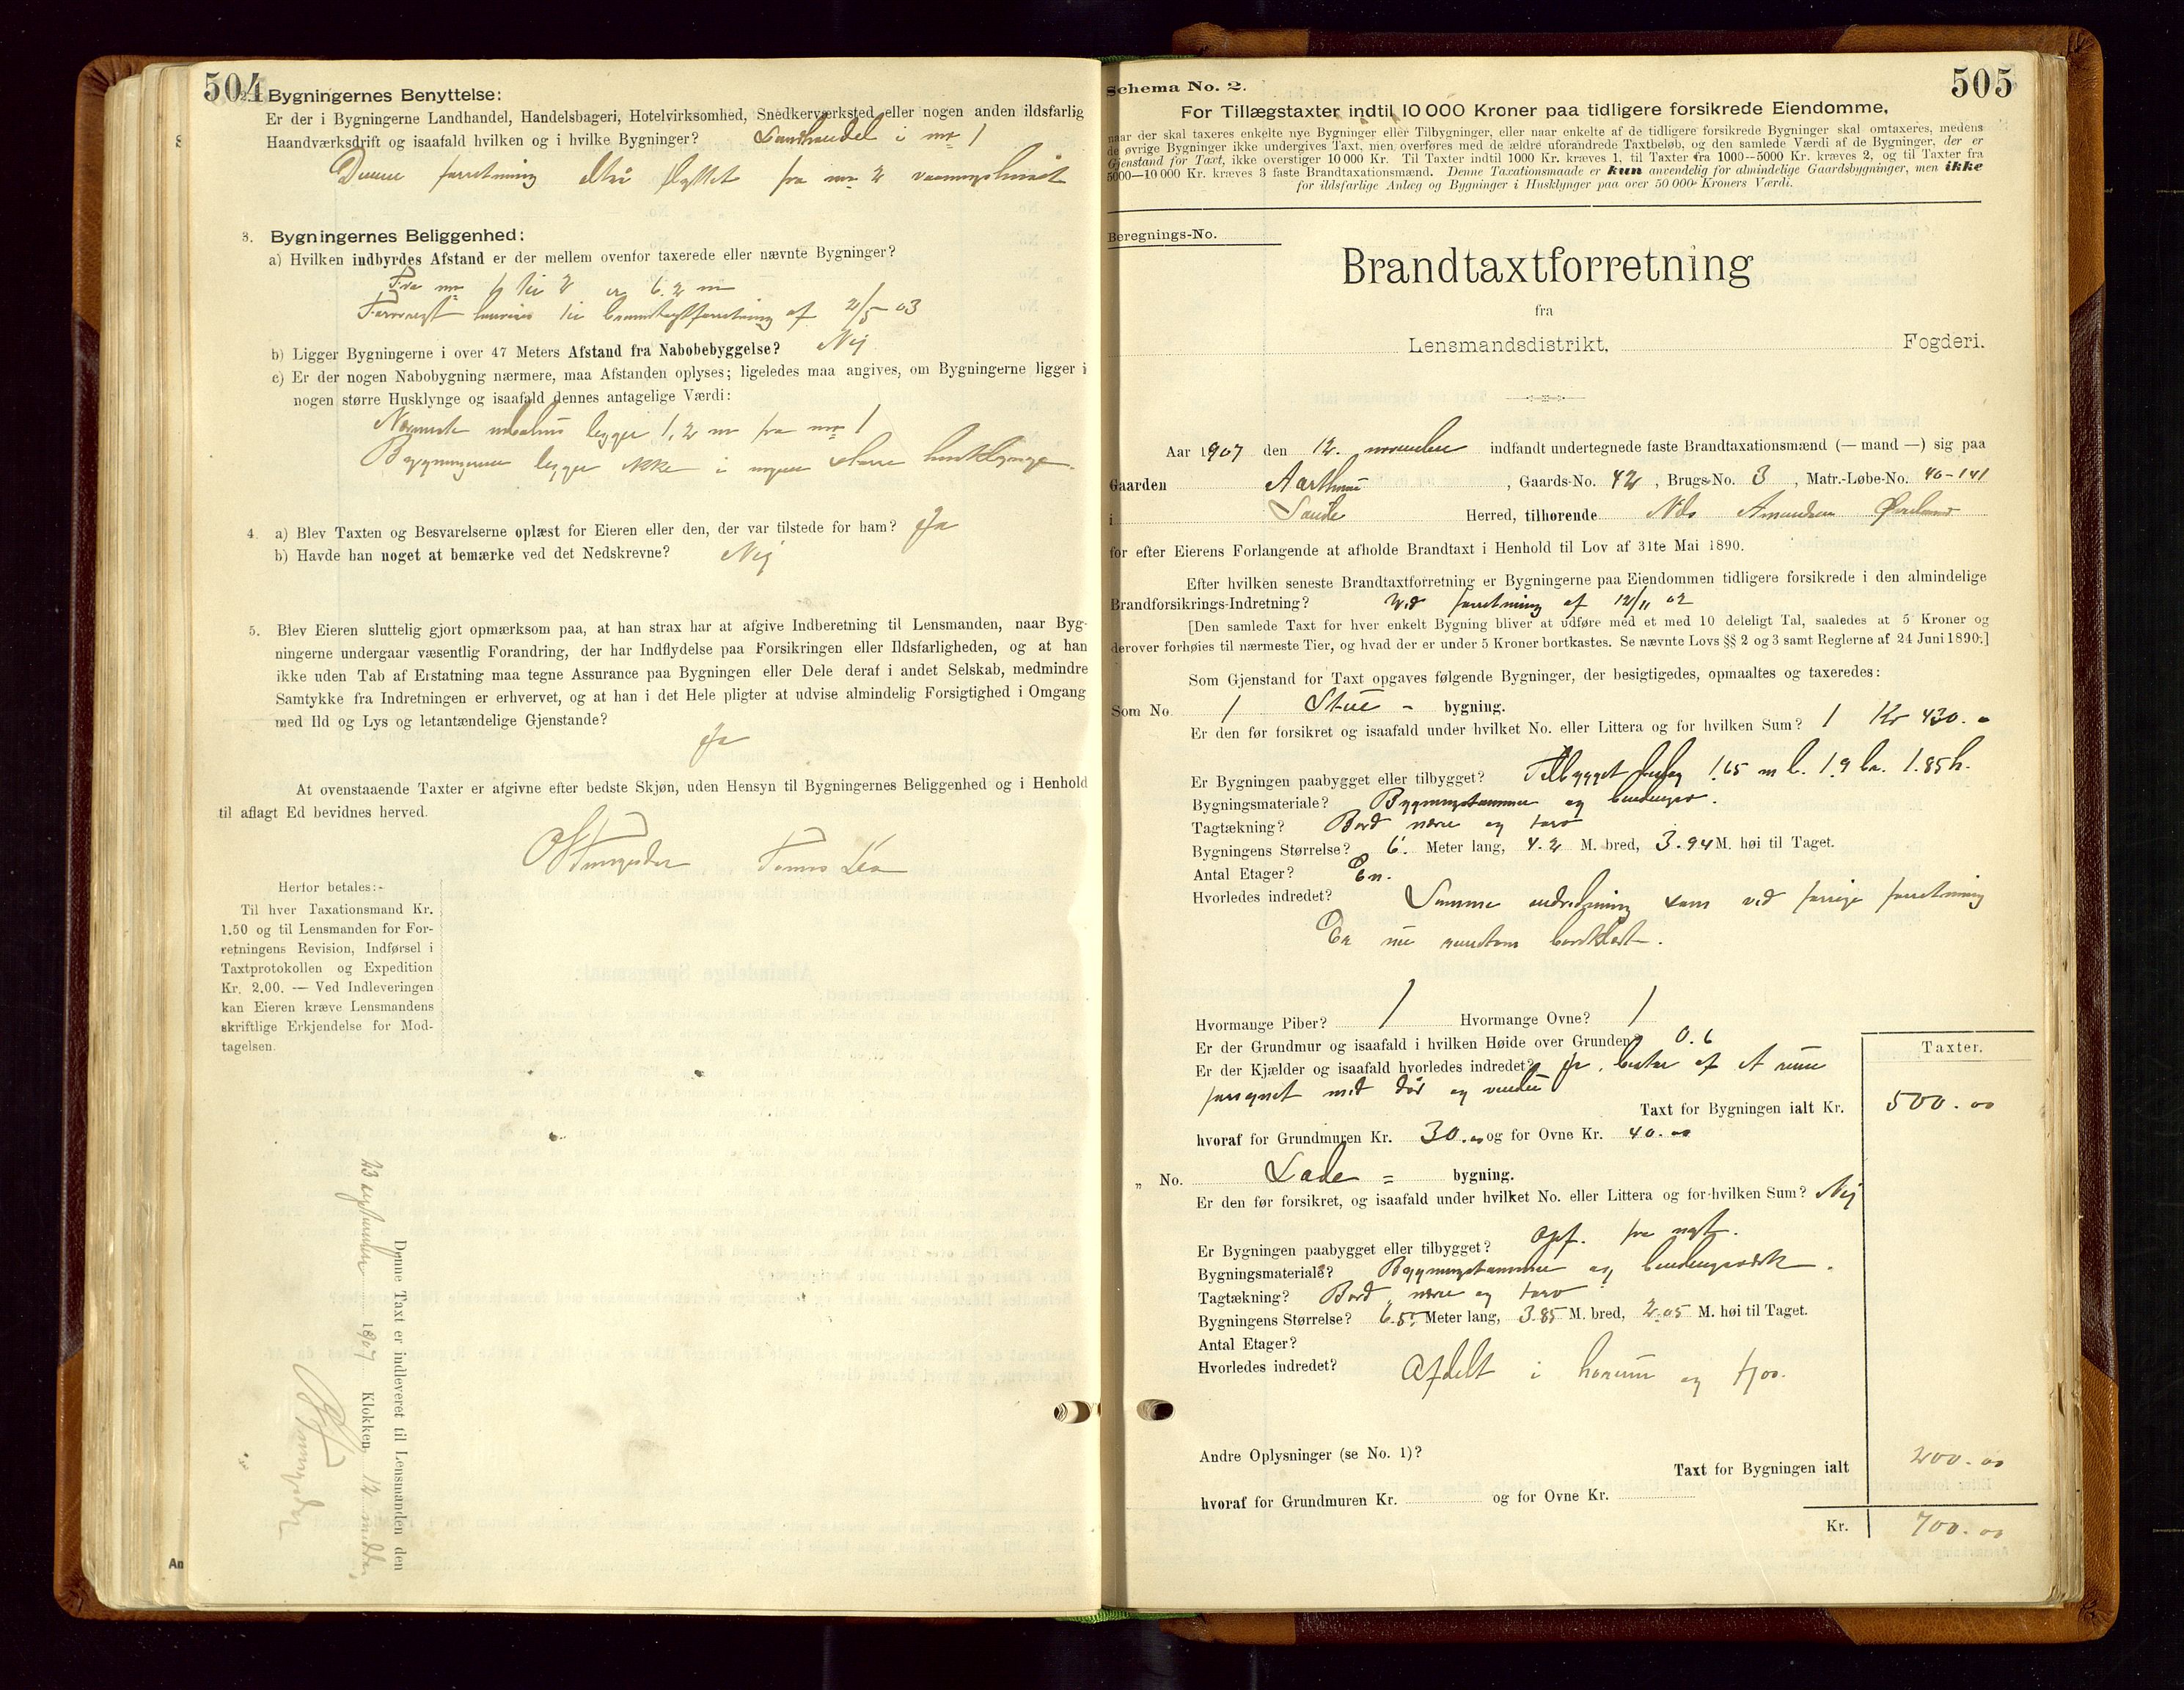 504
2. Bygningernes Benyttelse:
Er der i Bygningerne Landhandel, Handelsbageri, Hotelvirksomhed, Snedkerværksted eller nogen anden ildsfarlig
Haandværksdrift og isaafald hvilken og i hvilke Bygninger? Landhandel i no 1
Denne forretning altsi flyttet fra no 2 vaaningshuset
3. Bygningernes Beliggenhed:
a) Hvilken indbyrdes Afstand er der mellem ovenfor taxerede eller nævnte Bygninger?
Fra no 1 til 2 er 6.2 m
Forøvrigt henvises til brandtaxtforretning af 2/5 - 03
b) Ligger Bygningerne i over 47 Meters Afstand fra Nabobebyggelse? Nej
c) Er der nogen Nabobygning nærmere, maa Afstanden oplyses; ligeledes maa angives, om Bygningerne ligger i
nogen større Husklynge og isaafald dennes antagelige Værdi:
Nærmeste ligger 1,2 m fra no 1
Bygningerne ligger ikke i nogen større husklynge.
4. a) Blev Taxten og Besvarelserne oplæst for Eieren eller den, der var tilstede for ham? Ja
b) Havde han noget at bemærke ved det Nedskrevne? Nej
5. Blev Eieren sluttelig gjort opmærksom paa, at han strax har at afgive Indberetning til Lensmanden, naar Byg-
ningerne undergaar væsentlig Forandring, der har Indflydelse paa Forsikringen eller Ildsfarligheden, og at han
ikke uden Tab af Erstatning maa tegne Assurance paa Bygningen eller Dele deraf i andet Selskab, medmindre
Samtykke fra Indretningen er erhvervet, og at han i det Hele pligter at udvise almindelig Forsigtighed i Omgang
med Ild og Lys og letantændelige Gjenstande?
Ja
At ovenstaaende Taxter er afgivne efter bedste Skjøn, uden Hensyn til Bygningernes Beliggenhed og i Henhold
til aflagt Ed bevidnes herved.
Tomas Lea
Herfor betales:-
Til hver Taxationsmand Kr.
1.50 og til Lensmanden for For-
retningens Revision, Indførsel i
Taxtprotokollen og Expedition
Kr. 2.00. — Ved Indleveringen
kan Eieren kræve Lensmandens
skriftlige Erkjendelse for Mod-
tagelsen.
Denne Taxt er indleveret til Lensmanden den
23 september 1907 Klokken 12 middag
505
Schema No. 2.
For Tillægstaxter indtil 10 000 Kroner paa tidligere forsikrede Eiendomme,
naar der skal taxeres enkelte nye Bygninger eller Tilbygninger, eller naar enkelte af de tidligere forsikrede Bygninger skal omtaxeres, medens
de øvrige Bygninger ikke undergives Taxt, men overføres med de ældre uforandrede Taxtbeløb, og den samlede Værdi af de Bygninger, der er
Gjenstand for Taxt, ikke overstiger 10 000 Kr. Til Taxter indtil 1000 Kr. kræves 1, til Taxter fra 1000—5000 Kr. kræves 2, og til Taxter fra
5000—10 000 Kr. kræves 3 faste Brandtaxationsmænd. Denne Taxationsmaade er kun anvendelig for almindelige Gaardsbygninger, men ikke
for ildsfarlige Anlæg og Bygninger i Husklynger paa over 50 000 Kroners Værdi.
Beregnings-No.
Brandtaxtforretning
fra
Lensmandsdistrikt, Fogderi.
Aar 1907 den 12. november indfandt undertegnede faste Brandtaxationsmænd (— mand —) sig paa
Gaarden Aarthun, Gaards-No. 42, Brugs-No. 3, Matr.-Løbe-No. 40-141
i Saude Herred, tilhørende Nils Amundsen Øveland
for efter Eierens Forlangende at afholde Brandtaxt i Henhold til Lov af 31te Mai 1890.
Efter hvilken seneste Brandtaxtforretning er Bygningerne paa Eiendommen tidligere forsikrede i den almindelige
Brandforsikrings-Indretning? Ved forretning af 12/11 02
[Den samlede Taxt for hver enkelt Bygning bliver at udføre med et med 10 deleligt Tal, saaledes at 5 Kroner og
derover forhøies til nærmeste Tier, og hvad der er under 5 Kroner bortkastes. Se nævnte Lovs §§ 2 og 3 samt Reglerne af 24 Juni 1890.]
Som Gjenstand for Taxt opgaves følgende Bygninger, der besigtigedes, opmaaltes og taxeredes:
Som No. 1 Stue - bygning.
Er den før forsikret og isaafald under hvilket No. eller Littera og for hvilken Sum? 1 Kr 430.-
Er Bygningen paabygget eller tilbygget? Tilbygget 1.65 m l. 1.9 br. 1.85 h.
Bygningsmateriale? Bygningstømmer og bindingsv.
Tagtækning? Bord næver og torv
Bygningens Størrelse? 6. Meter lang, 4.2 M. bred, 3.94 M. høi til Taget.
Antal Etager? En.
Hvorledes indredet? Samme indredning som ved forrige forretning
Er nu rundtom bordklædt.
Hvormange Piber? 1 Hvormange Ovne? 1
Er der Grundmur og isaafald i hvilken Høide over Grunden? 0.6
Er der Kjælder og isaafald hvorledes indredet? Ja, bestar af et rum
forsynet med dør og vindu
Taxter.
Taxt for Bygningen ialt Kr. 500.00
hvoraf for Grundmuren Kr. 30.00 og for Ovne Kr. 40.00
„ No. Lade = bygning.
Er den før forsikret, og isaafald under hvilket No. eller Littera og for hvilken Sum? Nej
Er Bygningen paabygget eller tilbygget? Opf. fra nyt.
Bygningsmateriale? Bygningstømmer og bindingsværk.
Tagtækning? Bord, næver og torv
Bygningens Størrelse? 6.5 Meter lang, 3.85 M. bred, 2.05 M. høi til Taget.
Antal Etager?
Hvorledes indredet? Afdelt i hørum og fjøs.
Andre Oplysninger (se No. 1)?
Taxt for Bygningen ialt 200.00
hvoraf for Grundmuren Kr. og for Ovne Kr.
Kr. 700.00